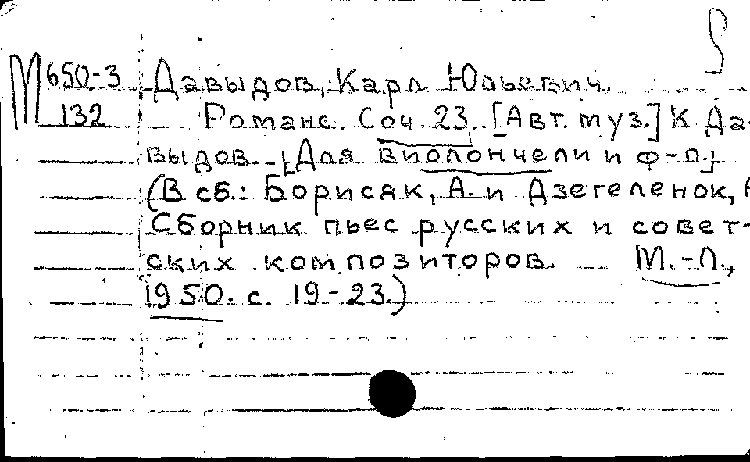 М 650-3 Давыдов, Карл Юльевич.
132 Романс. Соч. 23. [Авт. муз.] К. Да-
выдов. [Для виолончели и ф-п.]
(В сб.: Борисяк, А. и Дзегеленок, А
Сборник пьес русских и совет-
ских композиторов. М.-Л.,
1950. с. 19-23.)